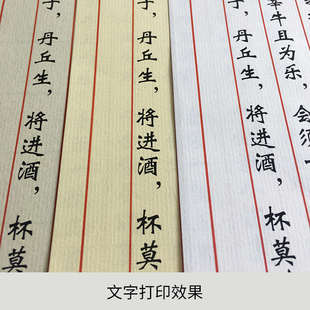 宰牛且为乐，会须一
子，丹丘生，将进酒，杯莫
子，丹丘生，将进酒，杯莫
子，丹丘生，将进酒，杯莫
文字打印效果